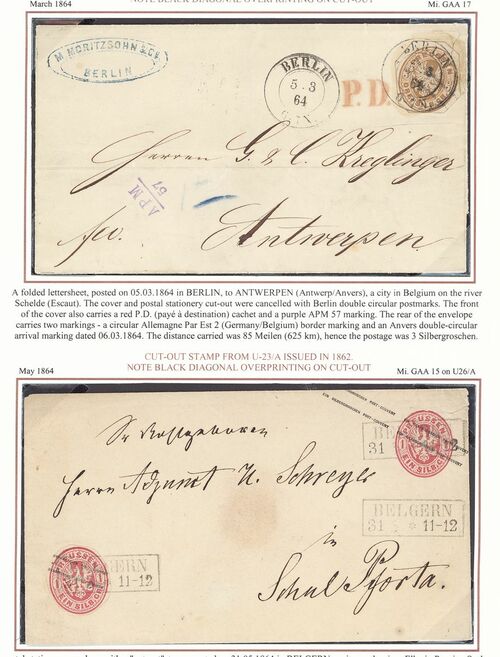 NOTE BLACK DIAGONAL OVERPRINTING ON CUT-OUT
March 1864
Mi. GAA 17
M. MORITZSOHN & Co.
BERLIN
BERLIN
5 . 3
64
P.D.
BERLIN
Herren G. & C. Kreglinger
APM
57
fco.
Antwerpen
A folded lettersheet, posted on 05.03.1864 in BERLIN, to ANTWERPEN (Antwerp/Anvers), a city in Belgium on the river
Schelde (Escaut). The cover and postal stationery cut-out were cancelled with Berlin double circular postmarks. The front
of the cover also carries a red P.D. (payé à destination) cachet and a purple APM 57 marking. The rear of the envelope
carries two markings - a circular Allemagne Par Est 2 (Germany/Belgium) border marking and an Anvers double-circular
arrival marking dated 06.03.1864. The distance carried was 85 Meilen (625 km), hence the postage was 3 Silbergroschen.
CUT-OUT STAMP FROM U-23/A ISSUED IN 1862.
NOTE BLACK DIAGONAL OVERPRINTING ON CUT-OUT
May 1864
Mi. GAA 15 on U26/A
PREUSSEN
EIN SILBGR.
31
Herrn Adjunct K. Schreyer
BELGERN
31 5 * 11-12
in
Schul Pforta.
PREUSSEN
EIN SILBGR.
GERN
11-12